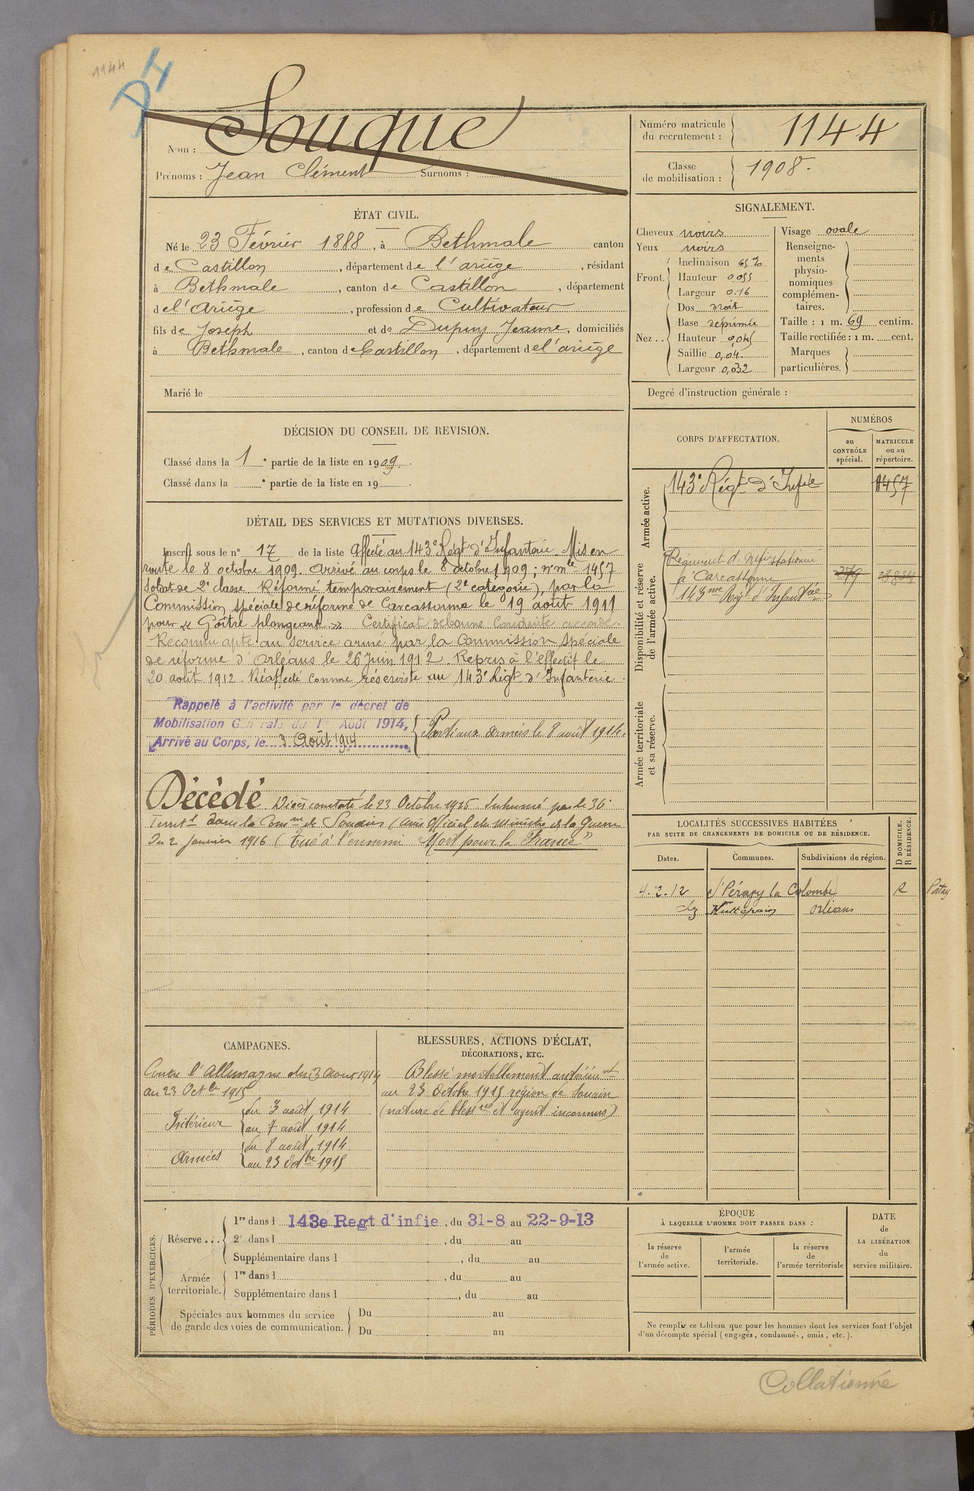 1144
D4
Nom : Souque
Prénoms : Jean Clément Surnoms :
Numéro matricule du recrutement : 1144
Classe de mobilisation : 1908.
ÉTAT CIVIL.
Né le 23 Février 1888, à Bethmale canton
de Castillon, département de l'ariège, résidant
à Bethmale, canton de Castillon, département
de l'Ariège, profession de Cultivateur
fils de Joseph et de Dupuy Jeanne, domiciliés
à Bethmale, canton de Castillon, département de l'ariège
Marié le
SIGNALEMENT.
Cheveux noirs
Yeux noirs
Front. Inclinaison
Hauteur 0,055
Largeur 0.16
Nez... Dos droit
Base déprimée
Hauteur 0,045
Saillie 0,04.
Largeur 0,032
Visage ovale
Renseignements physionomiques complémentaires.
Taille : 1 m. 69 centim.
Taille rectifiée : 1 m. cent.
Marques particulières.
Degré d'instruction générale :
DÉCISION DU CONSEIL DE REVISION.
Classé dans la 1e partie de la liste en 1909.
Classé dans la e partie de la liste en 19
DÉTAIL DES SERVICES ET MUTATIONS DIVERSES.
Inscrit sous le n° 17 de la liste Affecté au 143e Régt d'Infanterie Mis en
route le 8 octobre 1909. Arrivé au corps le 8 octobre 1909 ; n° mle 1457
Soldat de 2e classe. Réformé temporairement (2e catégorie), par la
Commission spéciale de réforme de Carcassonne le 19 août 1911
pour « Goître plongeant. » Certificat de bonne Conduite accordé.
Reconnu apte au service armé par la Commission spéciale
de réforme d'Orléans le 26 Juin 1912. Repris à l'effectif le
20 août 1912. Réaffecté comme réserviste au 143e Régt d'Infanterie.
Rappelé à l'activité par le décret de
Mobilisation Générale du 1er Août 1914,
Arrivé au Corps, le 3 Août 1914
Parti aux armées le 8 août 1914.
Décédé Décès constaté le 23 Octobre 1915. Inhumé par le 36e
Territl dans la Comne de Souain (avis officiel du Ministre de la Guerre
du 2 janvier 1916 (tué à l'ennemi "Mort pour la France"
CORPS D'AFFECTATION.
NUMÉROS
au CONTRÔLE spécial.
MATRICULE ou au répertoire.
Armée active.
143e Régt d'Infie 1457
Disponibilité et réserve de l'armée active.
Régiment d'Infanterie
à Carcassonne
143me Régt d'Infanterie
Armée territoriale et sa réserve.
LOCALITÉS SUCCESSIVES HABITÉES
PAR SUITE DE CHANGEMENTS DE DOMICILE OU DE RÉSIDENCE.
Dates.
Communes.
Subdivisions de région.
D DOMICILE. R RÉSIDENCE.
4.2.12 St Péravy la Colombe R Patay
Orléans
CAMPAGNES.
Contre l'Allemagne du 3 août 1914
au 23 Octbre 1915
Intérieur du 3 août 1914
au 7 août 1914
Armées du 8 août 1914
au 23 Octbre 1915
BLESSURES, ACTIONS D'ÉCLAT,
DÉCORATIONS, ETC.
Blessé mortellement antérieurnt
au 23 Octobre 1915 région de Souain
(nature de blessres et agent inconnus)
PÉRIODES D'EXERCICES.
Réserve... 1re dans l 143e Regt d'infie, du 31-8 au 22-9-13
2e dans l , du au
Supplémentaire dans l , du au
Armée territoriale. 1re dans l , du au
Supplémentaire dans l , du au
Spéciales aux hommes du service
de garde des voies de communication. Du au
Du au
ÉPOQUE
À LAQUELLE L'HOMME DOIT PASSER DANS :
la réserve de l'armée active.
l'armée territoriale.
la réserve de l'armée territoriale
DATE DE LA LIBÉRATION du service militaire.
Ne remplir ce tableau que pour les hommes dont les services font l'objet
d'un décompte spécial (engagés, condamnés, omis, etc.).
Collationné